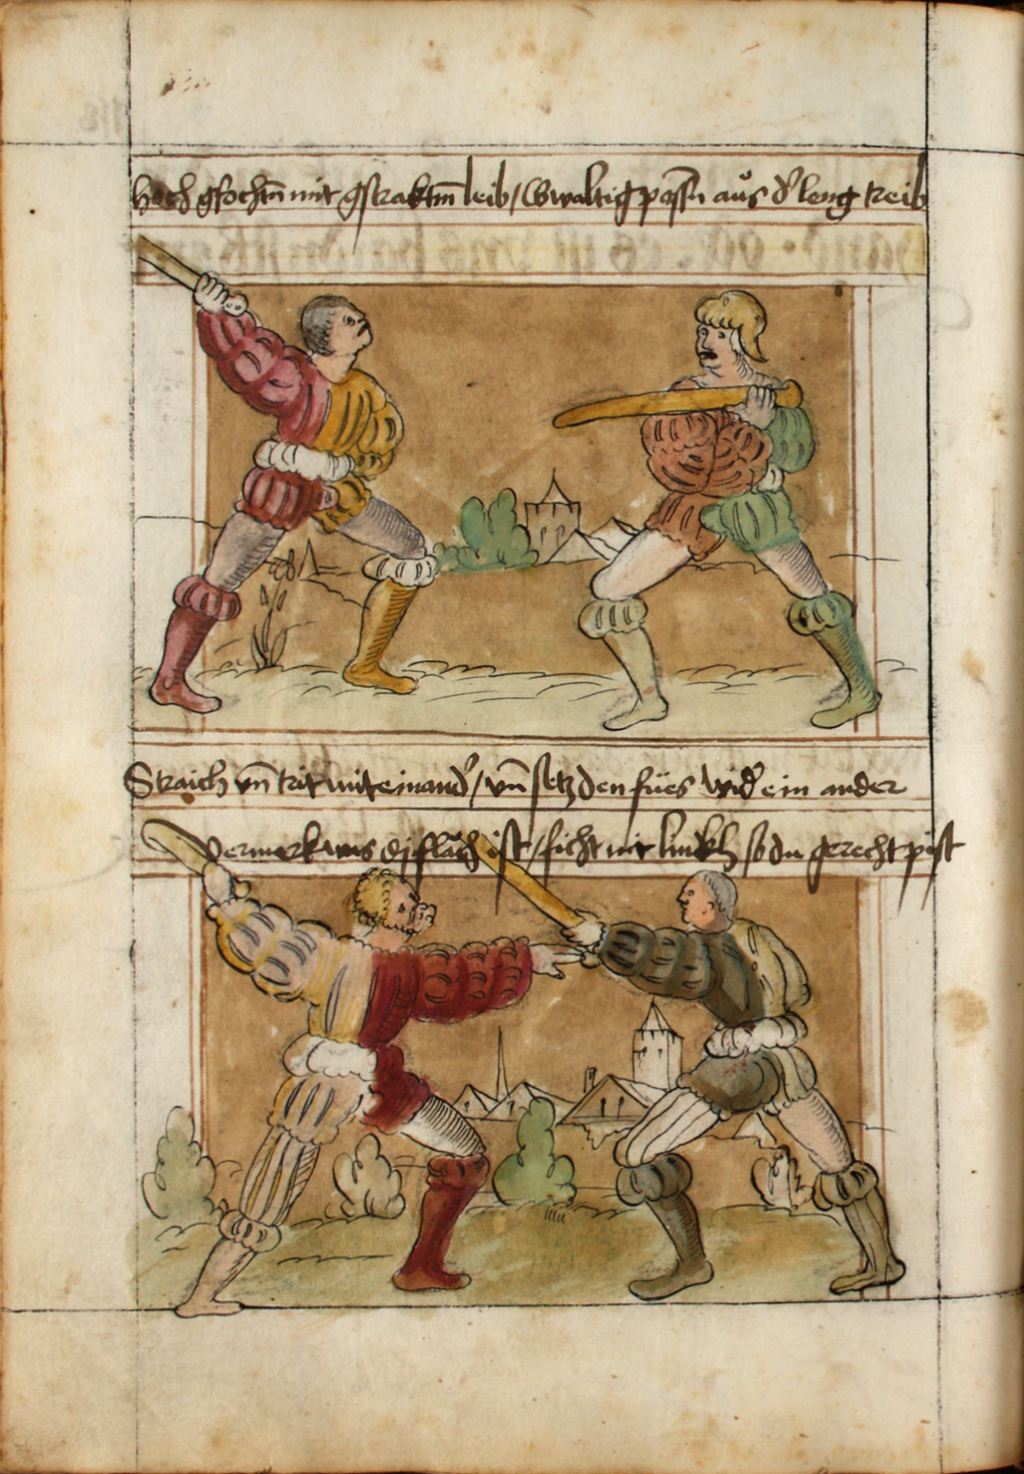 hoch gfochtn̄ mit gstraktm̄ leib / Gwaltig possn̄ aůs d' leng treib
Straich vn̄ trit mit einand' / vn̄ setz den fües wid' ein ander
Vermerk was di flǎch ist / ficht mit linckh so du gerecht pist